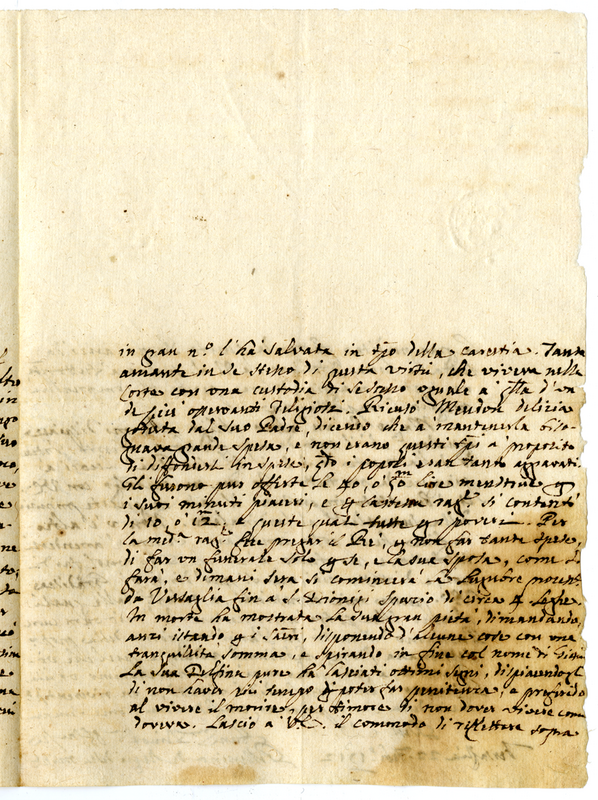 in gran n.º l'hà salvata in tpo della carestia. Tanto
amante in se stesso di questa virtù, che viveva nella
Corte con una custodia di se stesso uguale a q'lla d'un
de più operanti Religiosi. Ricusò Meudon delizia
dal suo Padre, dicendo che a mantenerla biso-
gnava grande spesa, e non erano questi tpi a proposito
di diffondersi in spese, q'do i popoli eran tanto aggravati.
Gli furono pur offerte le 40, ò 50 lire menstrue
i suoi minuti piaceri, e la stessa rag.e si contentò
di 10, ò 12, e queste quasi tutte poveri. Per
la med.a rag.e fece pregar il Rè, non far tante spese,
di far un funerale solo se, e la sua sposa, come
farà, e dimani sera si comincierà la lugubre
da Versaglia fin a S. Dionigi spazio di circa 4 leghe.
In morte ha mostrata la sua gran pietà, dimandando,
anzi istando i Sacri, disponendo d'alcune cose con una
tranquillità somma, e spirando in fine col nome di Giesù
La sua Delfina pure hà lasciati ottimi segni, dispiacendogli
di non haver più tempo poter far penitenza, e preferendo
al vivere il morire, per timore di non dover vivere come
doveva. Lascio a V.R. il commodo di riflettere sopra